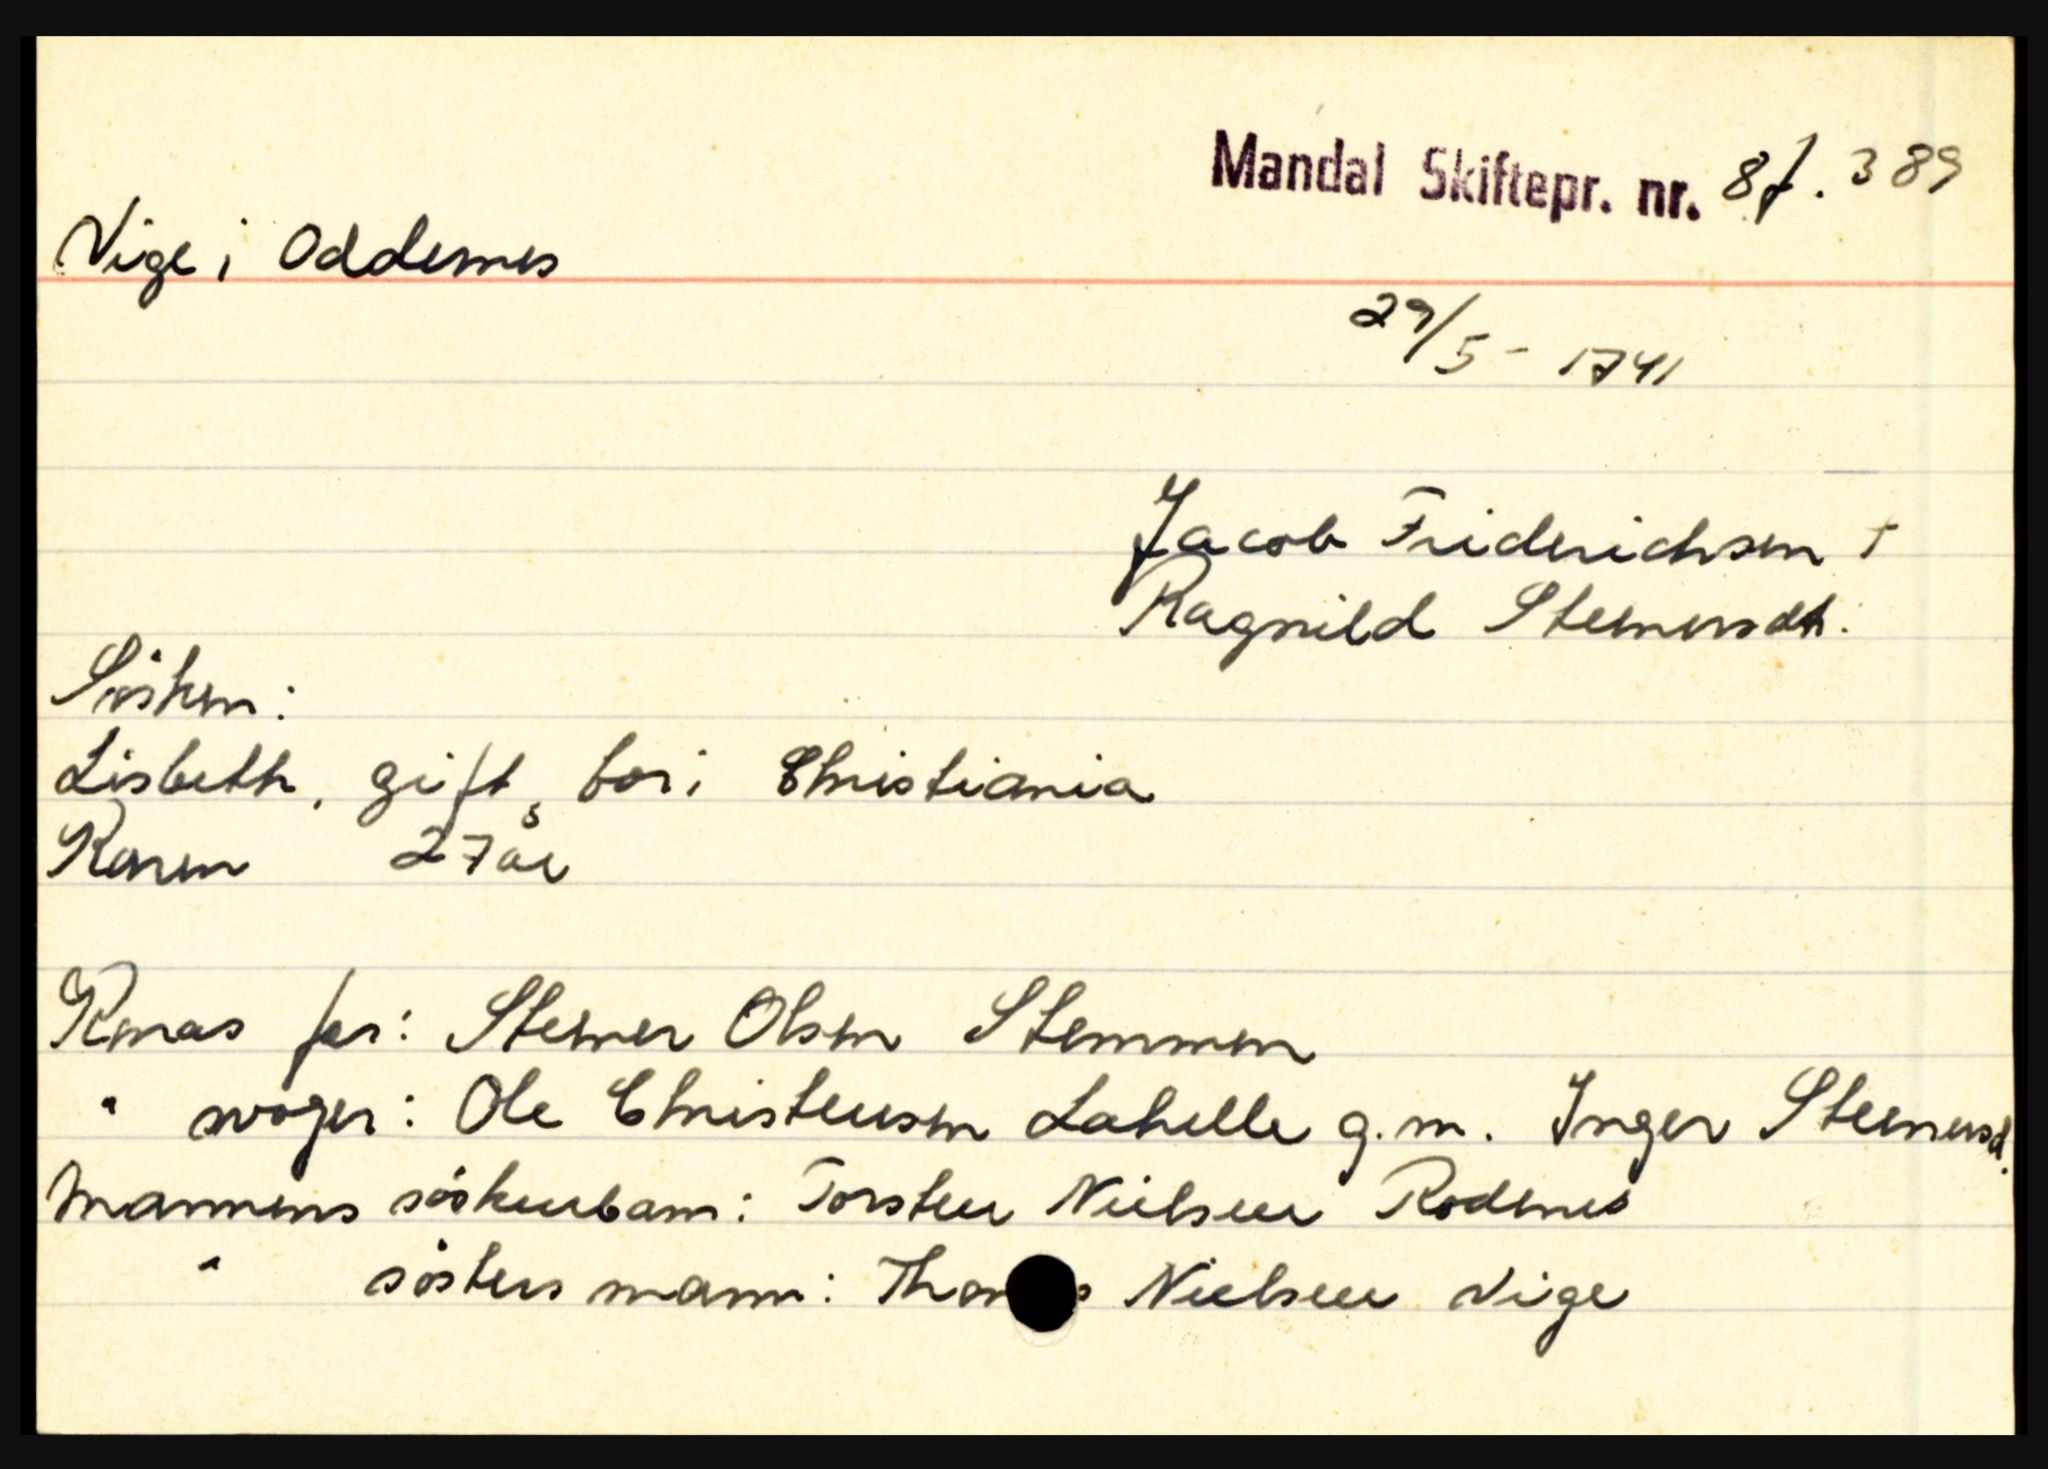 Mandal Skiftepr. nr. 8 f. 389
Vige i Oddernes
29/5 - 1741
Jacob Friderichsen †
Ragnild Steenersdt.
Søsken:
Lisbeth, gift, bor i Christiania
Karen 27 år
Konas far: Stener Olsen Stemmen
" svoger: Ole Christensen Lahelle g.m. Inger Steenersd.
Mannens søskenbarn: Torsten Nielsen Rodenes
" søsters mann: Nielsen Vige